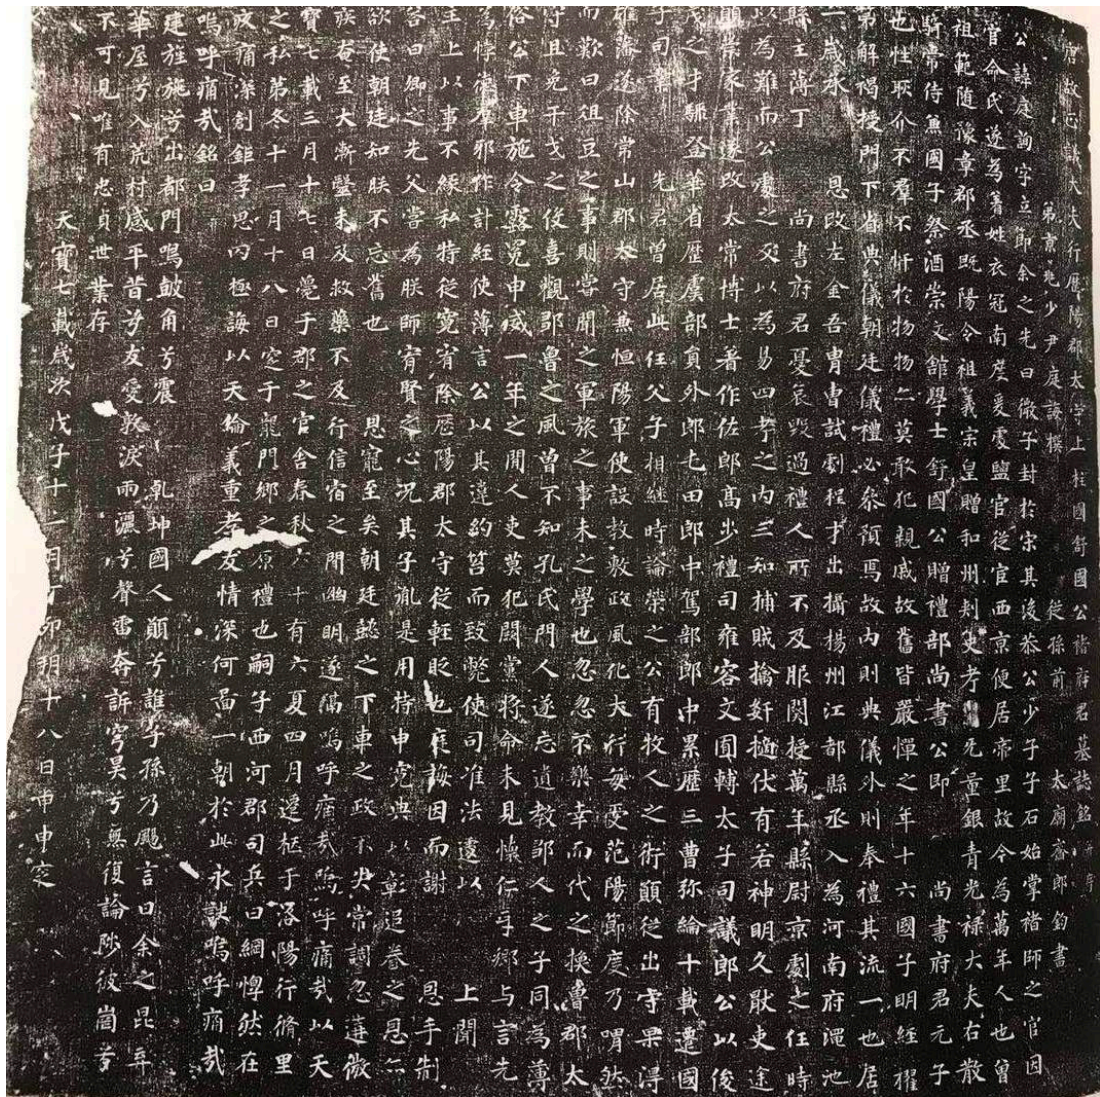 唐故忠議大夫行歷陽郡太守上柱國舒國公褚府君墓誌銘并序
第京兆少尹庭誨撰 從孫前太廟齋郎鈞書
公諱庭詢字立節余之先曰微子封於宋其後恭公少子子石始掌褚師之官因
官命氏遂為著姓衣冠南度爰處鹽官從宦西京便居帝里故今為萬年人也曾
祖範隨豫章郡丞既陽令祖義宗皇贈和州刾史考无量銀青光禄大夫右散
騎常侍兼國子祭酒崇文館學士舒國公贈禮部尚書公即 尚書府君元子
也性耿介不羣不忤於物物亦莫敢犯親戚故舊皆嚴憚之年十六國子明經擢
第解褐授門下省典儀朝廷儀禮必叅預焉故內則典儀外則奉禮其流一也居
一歲承 恩改左金吾胄曹試劇程才出攝揚州江都縣丞入為河南府澠池
縣主薄丁 尚書府君憂哀毀過禮人所不及服闋授萬年縣尉京劇之任時
以為難而公處之又以為易四考之內三知捕賊擒奸擿伏有若神明久猒吏途
願崇家業遂改太常博士著作佐郎高步禮司雍容文囿轉太子司議郎公以後
茂之才驟登華省歷虞部負外郎屯田郎中駕部郎中累歷三曹弥綸十載遷國
子司業 先君曾居此任父子相継時論榮之公有牧人之術願從出守果得
雄藩遂除常山郡太守兼恒陽軍使設教敷政風化大行每受范陽節度乃喟然
而歎曰俎豆之事則嘗聞之軍旅之事未之學也忽忽不樂幸而代之換魯郡太
守且免干戈之役喜觀鄒魯之風曾不知孔氏門人遂忘遺教鄒人之子同為薄
俗公下車施令露冕申威一年之閒人吏莫犯闕黨將命未見懷仁乎鄉与言先
為悖德羣邪作計經使薄言公以其違約笞而致斃使司准法遽以 上聞
主上以事不緣私特從寬宥除歷陽郡太守從輕貶也庭誨因而謝 恩手制
荅曰卿之先父嘗為朕師宥賢之心况其子胤是用特申寬典以彰追眷之恩亦
欲使朝廷知朕不忘舊也 恩寵至矣朝廷懿之下車之政不失常調忽遘微
疾奄至大漸毉未及救藥不及行信宿之閒幽明遂隔嗚呼痛哉嗚呼痛哉以天
寶七載三月十七日薨于郡之官舍春秋六十有六夏四月遷柩于洛陽行脩里
之私第冬十一月十八日窆于龍門鄉之原禮也嗣子西河郡司兵曰綱惸然在
疚痛深創鉅孝思罔極誨以天倫義重孝友情深何啚一朝於此永訣嗚呼痛哉
嗚呼痛哉銘曰
建旌旆兮出部門鳴皷角兮震乹坤國人顒兮誰子孫乃颺言曰余之昆弃
華屋兮入荒村感平昔兮友愛敦淚雨灑兮聲雷奔訴穹昊兮無復論陟彼崗兮
不可見唯有忠貞世業存
天寶七載歲次戊子十一月丁卯朔十八日甲申窆